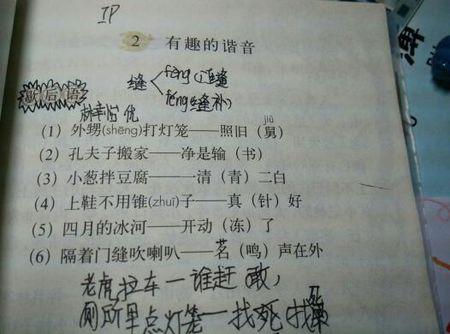 IP
2 有趣的谐音
缝
fèng(门缝
féng(缝补)
歇后语
(1) 外甥(shēng)打灯笼——照旧(舅)
jiù
(2) 孔夫子搬家——净是输(书)
(3) 小葱拌豆腐——一清(青)二白
(4) 上鞋不用锥(zhuī)子——真(针)好
(5) 四月的冰河——开动(冻)了
(6) 隔着门缝吹喇叭——名(鸣)声在外
老虎拉车一谁赶敢,
厕所里点灯笼一找死找